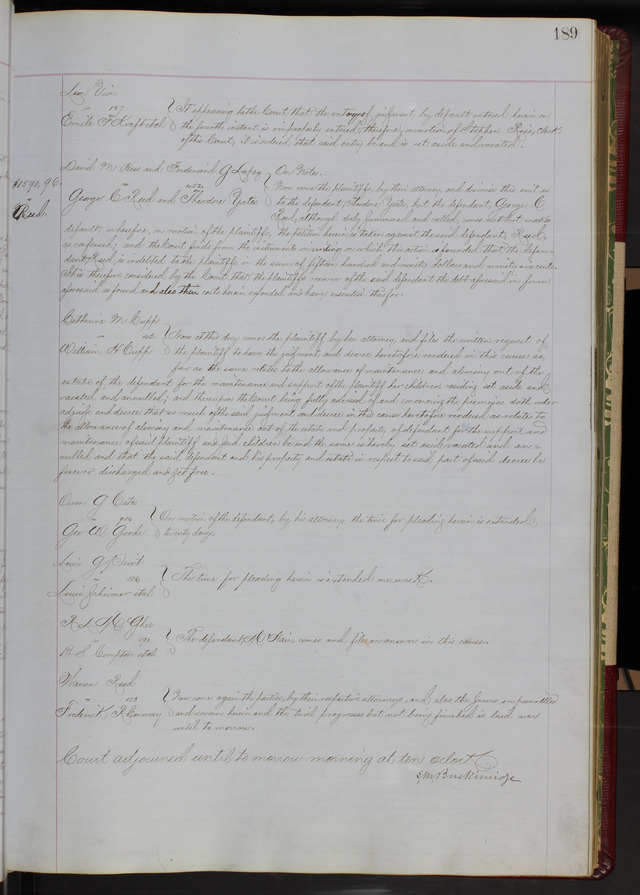 189
Leo Vion
vs 187
Emile F. Kraft et al
It appearing to the Court that the entry of judgment by default entered herein on
the fourth instant is improperly entered, therefore, on motion of Stephen Rice, Clerk
of this Court, it is ordered that said entry be and is set aside and vacated.
David M Hess and Ferdinand G Lopez
vs 452
George C Reed and Theodore Yates
$1590,96.
Reed.
On Note.
Now come the plaintiffs, by their attorney, and dismiss this suit as
to the defendant, Theodore Yates, but the defendant, George C
Reed, although duly summoned and called, comes not but makes
default; wherefore, on motion of the plaintiffs, the petition herein is taken against the said defendant, Reed,
as confessed; and the Court finds from the instrument in writing on which this action is founded that the defen-
dant, Reed, is indebted to the plaintiffs in the sum of fifteen hundred and ninety dollars and ninety six cents.
It is therefore considered by the Court that the plaintiffs recover of the said defendant the debt aforesaid in form
aforesaid as found and also their costs herein expended and have execution therefor.
Catherine M. Cupp
vs
William H. Cupp
Now at this day comes the plaintiff by her attorney and files the written request of
the plaintiff to have the judgment and decree heretofore rendered in this cause so
far as the same relates to the allowance of maintenance and alimony out of the
estate of the defendant for the maintenance and support of the plaintiff her children residing set aside and
vacated and annulled; and thereupon the Court being fully advised of and concerning the premises doth order
adjudge and decree that so much of the said judgment and decree in this cause heretofore rendered as relates to
the allowance of alimony and maintenance out of the estate and property of defendant for the support and
maintenance of said plaintiff and said children be and the same is hereby set aside, vacated and an-
nulled and that the said defendant and his property and estate in respect to said part of said decree be
forever discharged and set free.
Owen G Cates
vs 924
Geo W. Goode
On motion of the defendants, by his attorney the time for pleading herein is extended
twenty days.
Louis G. Picot
vs
Louis et al
The time for pleading herein is extended one week.
R L McGhee
vs 190
B. S. Compton et al
The defendant, McNair, comes and files an answer in this cause.
Warren Reed
vs 133
Frederick R Conway
Now come again the parties, by their respective attorneys, and also the Jurors empannelled
and sworn herein and the trial progresses but not being finished is laid over
until to morrow.
Court adjourned until to morrow morning at ten oclock
S. M. Breckinridge